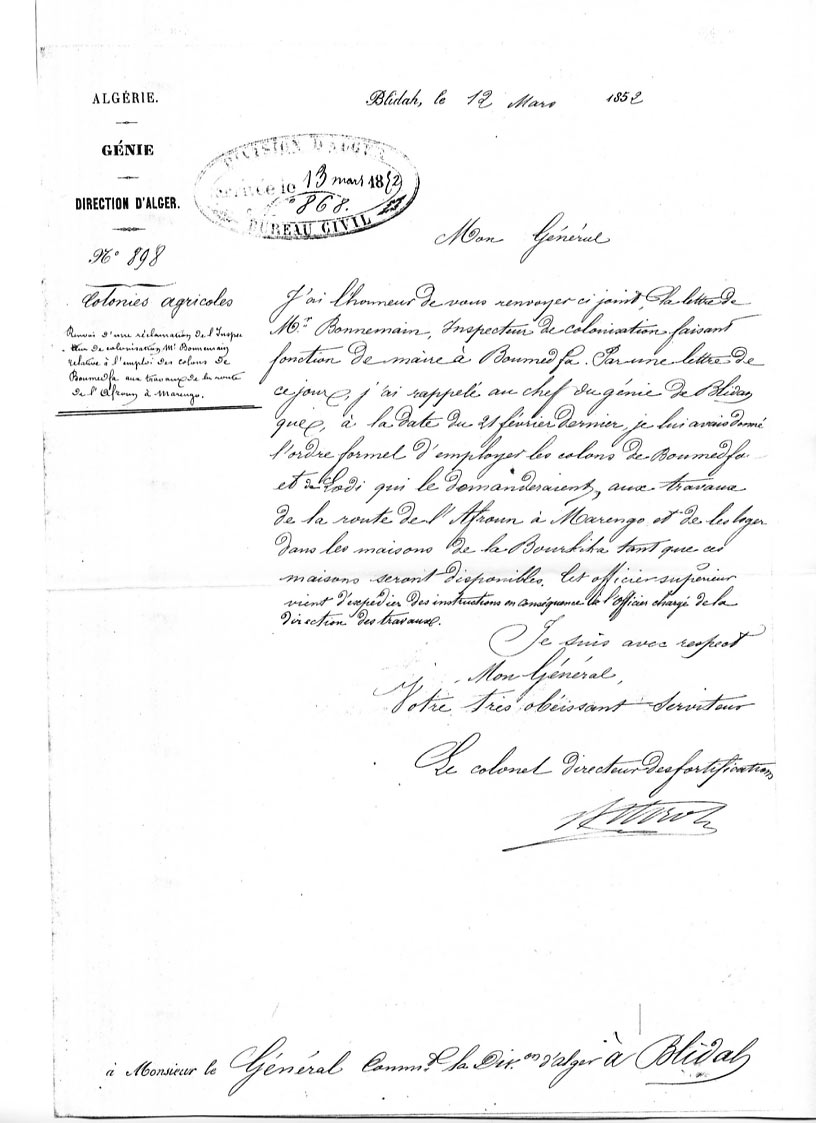 ALGÉRIE.
GÉNIE
DIRECTION D'ALGER.
N° 898
Colonies agricoles
Renvoi d'une réclamation de l'Inspec
teur de colonisation, Mr Bonnemain
relative à l'emploi des colons de
Boumedfa aux travaux de la route
de l'Afroun à Marengo.
Blidah, le 12 Mars 1852
DIVISION D'ALGER
le 13 mars 1852
N° 868.
BUREAU CIVIL
Mon Général
J'ai l'honneur de vous renvoyer ci joint, la lettre de
Mr. Bonnemain, Inspecteur de colonisation faisant
fonction de maire à Boumedfa. Par une lettre de
ce jour, j'ai rappelé au chef du génie de Blidah
que, à la date du 21 février dernier, je lui avais donné
l'ordre formel d'employer les colons de Boumedfa
et de Lodi qui le demanderaient, aux travaux
de la route de l'Afroun à Marengo et de les loger
dans les maisons de la Bourkika tant que ces
maisons seront disponibles. Cet officier supérieur
vient d'expédier des instructions en conséquence à l'officier chargé de la
direction des travaux.
Je suis avec respect
Mon Général,
Votre très obéissant serviteur
Le colonel directeur des fortifications
à Monsieur le Général Commdt la Divon d'alger à Blidah